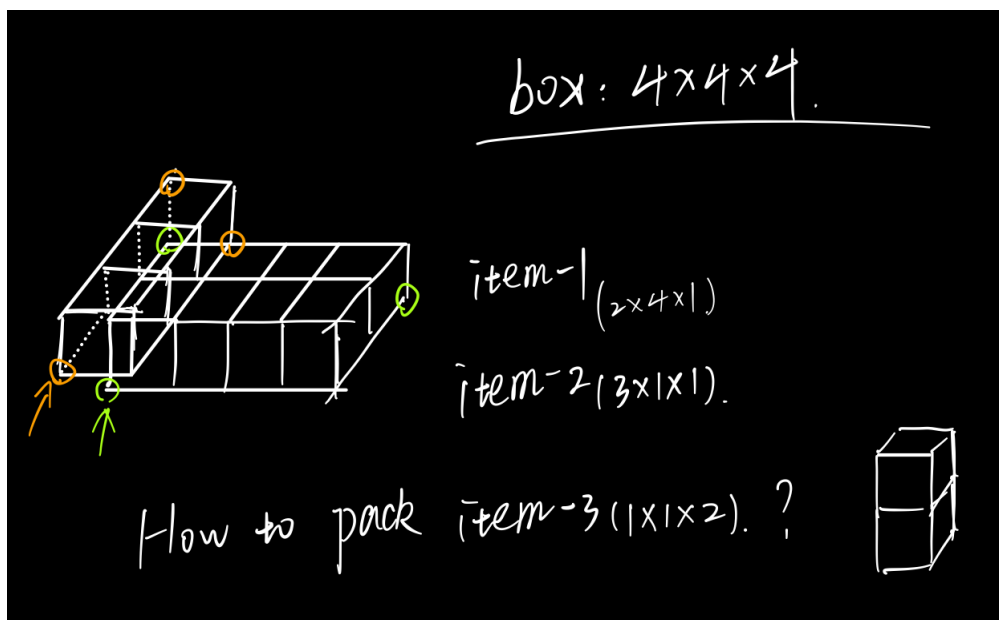 box: 4x4x4.
item-1 (2x4x1.)
item-2 (3x1x1).
How to pack item-3 (1x1x2). ?